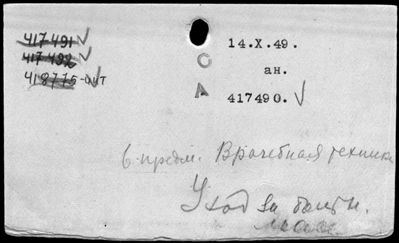 417491 √
417492 √
418775-опт
14.X.49.
О
ан.
А
417490. √
в предм. Врачебная техника
Уход за больн.